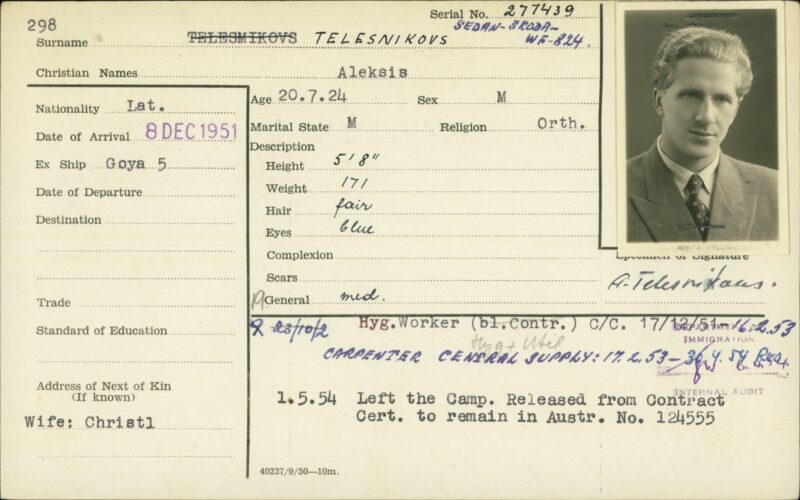 298
Serial No. 277439
Surname TELESMIKOVS TELESNIKOVS SEDAN-SKODA- WE-824.
Christian Names Aleksis
Nationality Lat.
Date of Arrival 8 DEC 1951
Ex Ship Goya 5
Date of Departure
Destination
Trade
Standard of Education
Address of Next of Kin
(If known)
Wife: Christl
Age 20.7.24 Sex M
Marital State M Religion Orth.
Description
Height 5'8"
Weight 171
Hair fair
Eyes blue
Complexion
Scars
General med.
Specimen of Signature
A. Telesnikovs.
23/10/2 Hyg. Worker (bl. Contr.) C/C. 17/12/51-16.2.53
Hyg +
CARPENTER CENTRAL SUPPLY: 17.2.53-30.4.54
IMMIGRATION
INTERNAL AUDIT
1.5.54 Left the Camp. Released from Contract
Cert. to remain in Austr. No. 124555
40237/9/50—10m.